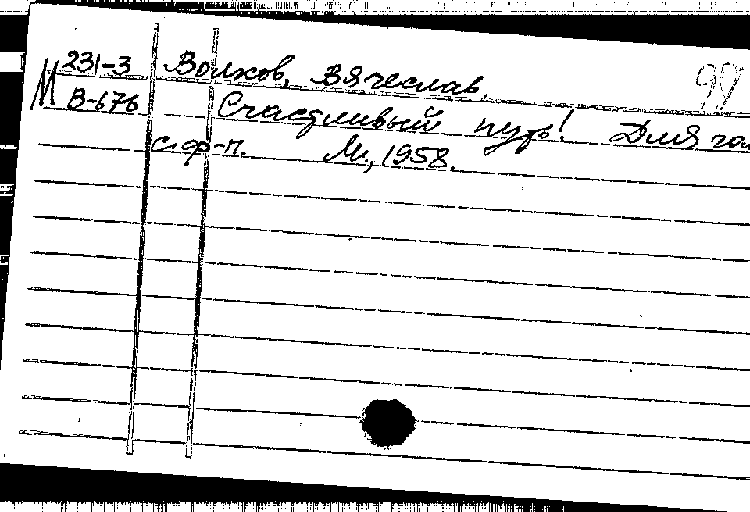 М 231-3 Волков, Вячеслав. 99
В-676 Счастливый путь! Для го
с. ф-п. М., 1958.